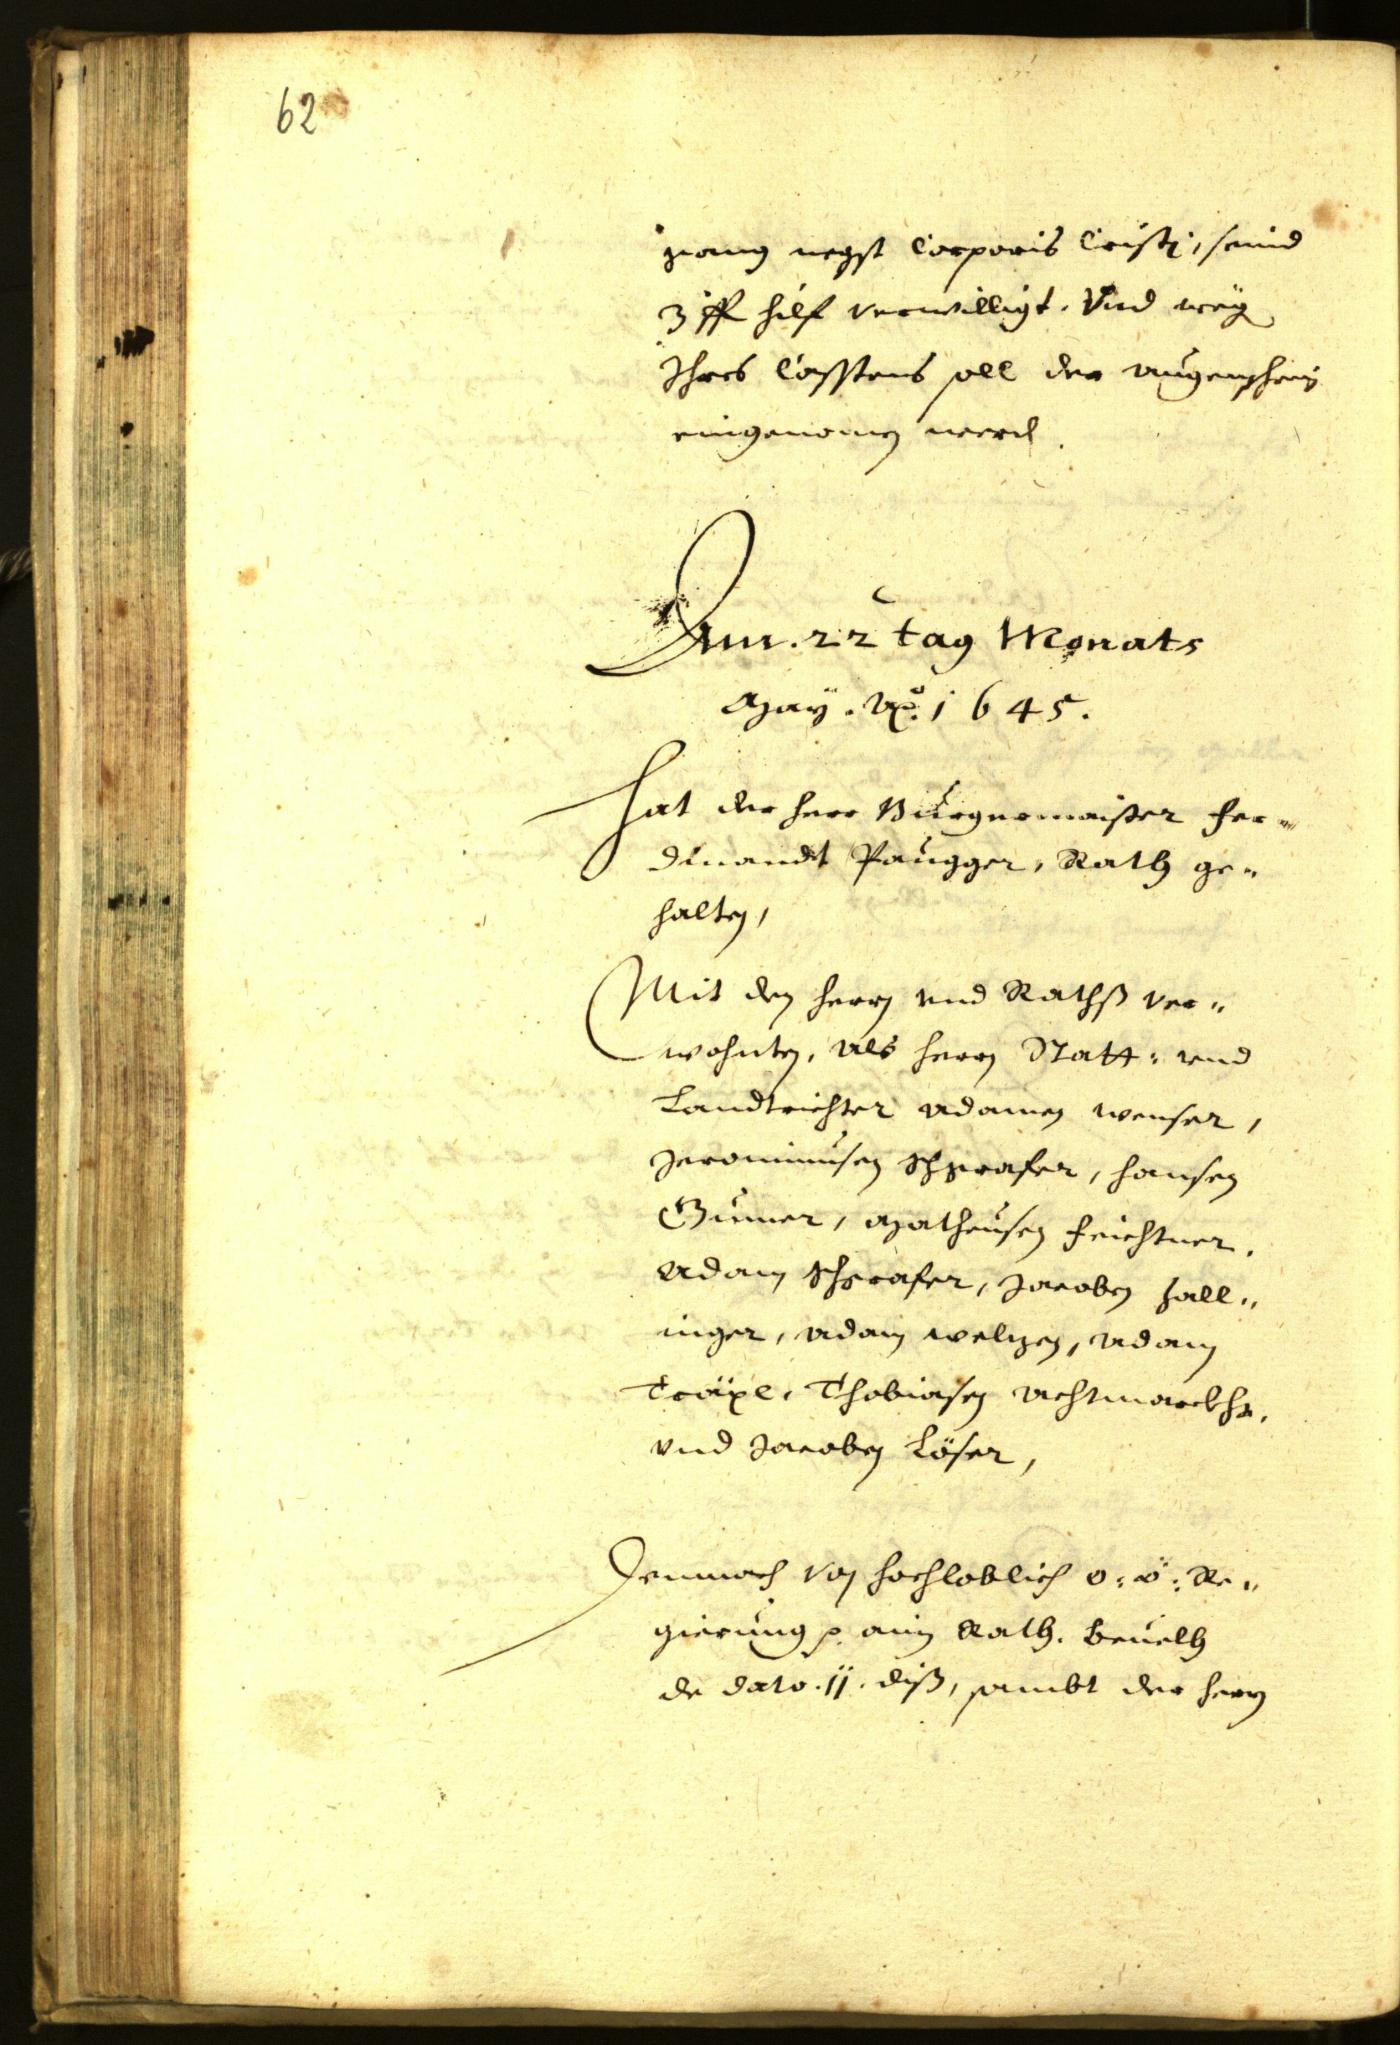 62
gang negst Corporis Cristj, seind
3 fl hilf verwilligt. Vnd weg
Ihres Casstens soll der augenschein
eingenomen werd.
Den. 22 tag Monats
May. Ao. 1645.
Hat der herr Burgermaister Fer=
dinandt Paugger, Rath ge=
halten,
Mit den herrn vnd Rathß ver=
wohnten, als herrn Statt= vnd
Landtrichter Adamen wenser,
Jeronimusen Schgrafer, hansen
Gumer, Matheusen Feichtner.
Adam Schgrafer, Jacoben Zall=
inger, Adam welzen, Adam
Träxl, Thobiasen Achtmarckht,
vnd Jacoben Löser,
Demnach von hochloblich o: ö: Re=
gierung p. ain Rath. beuelh
de dato. 11. diß, sambt der herrn